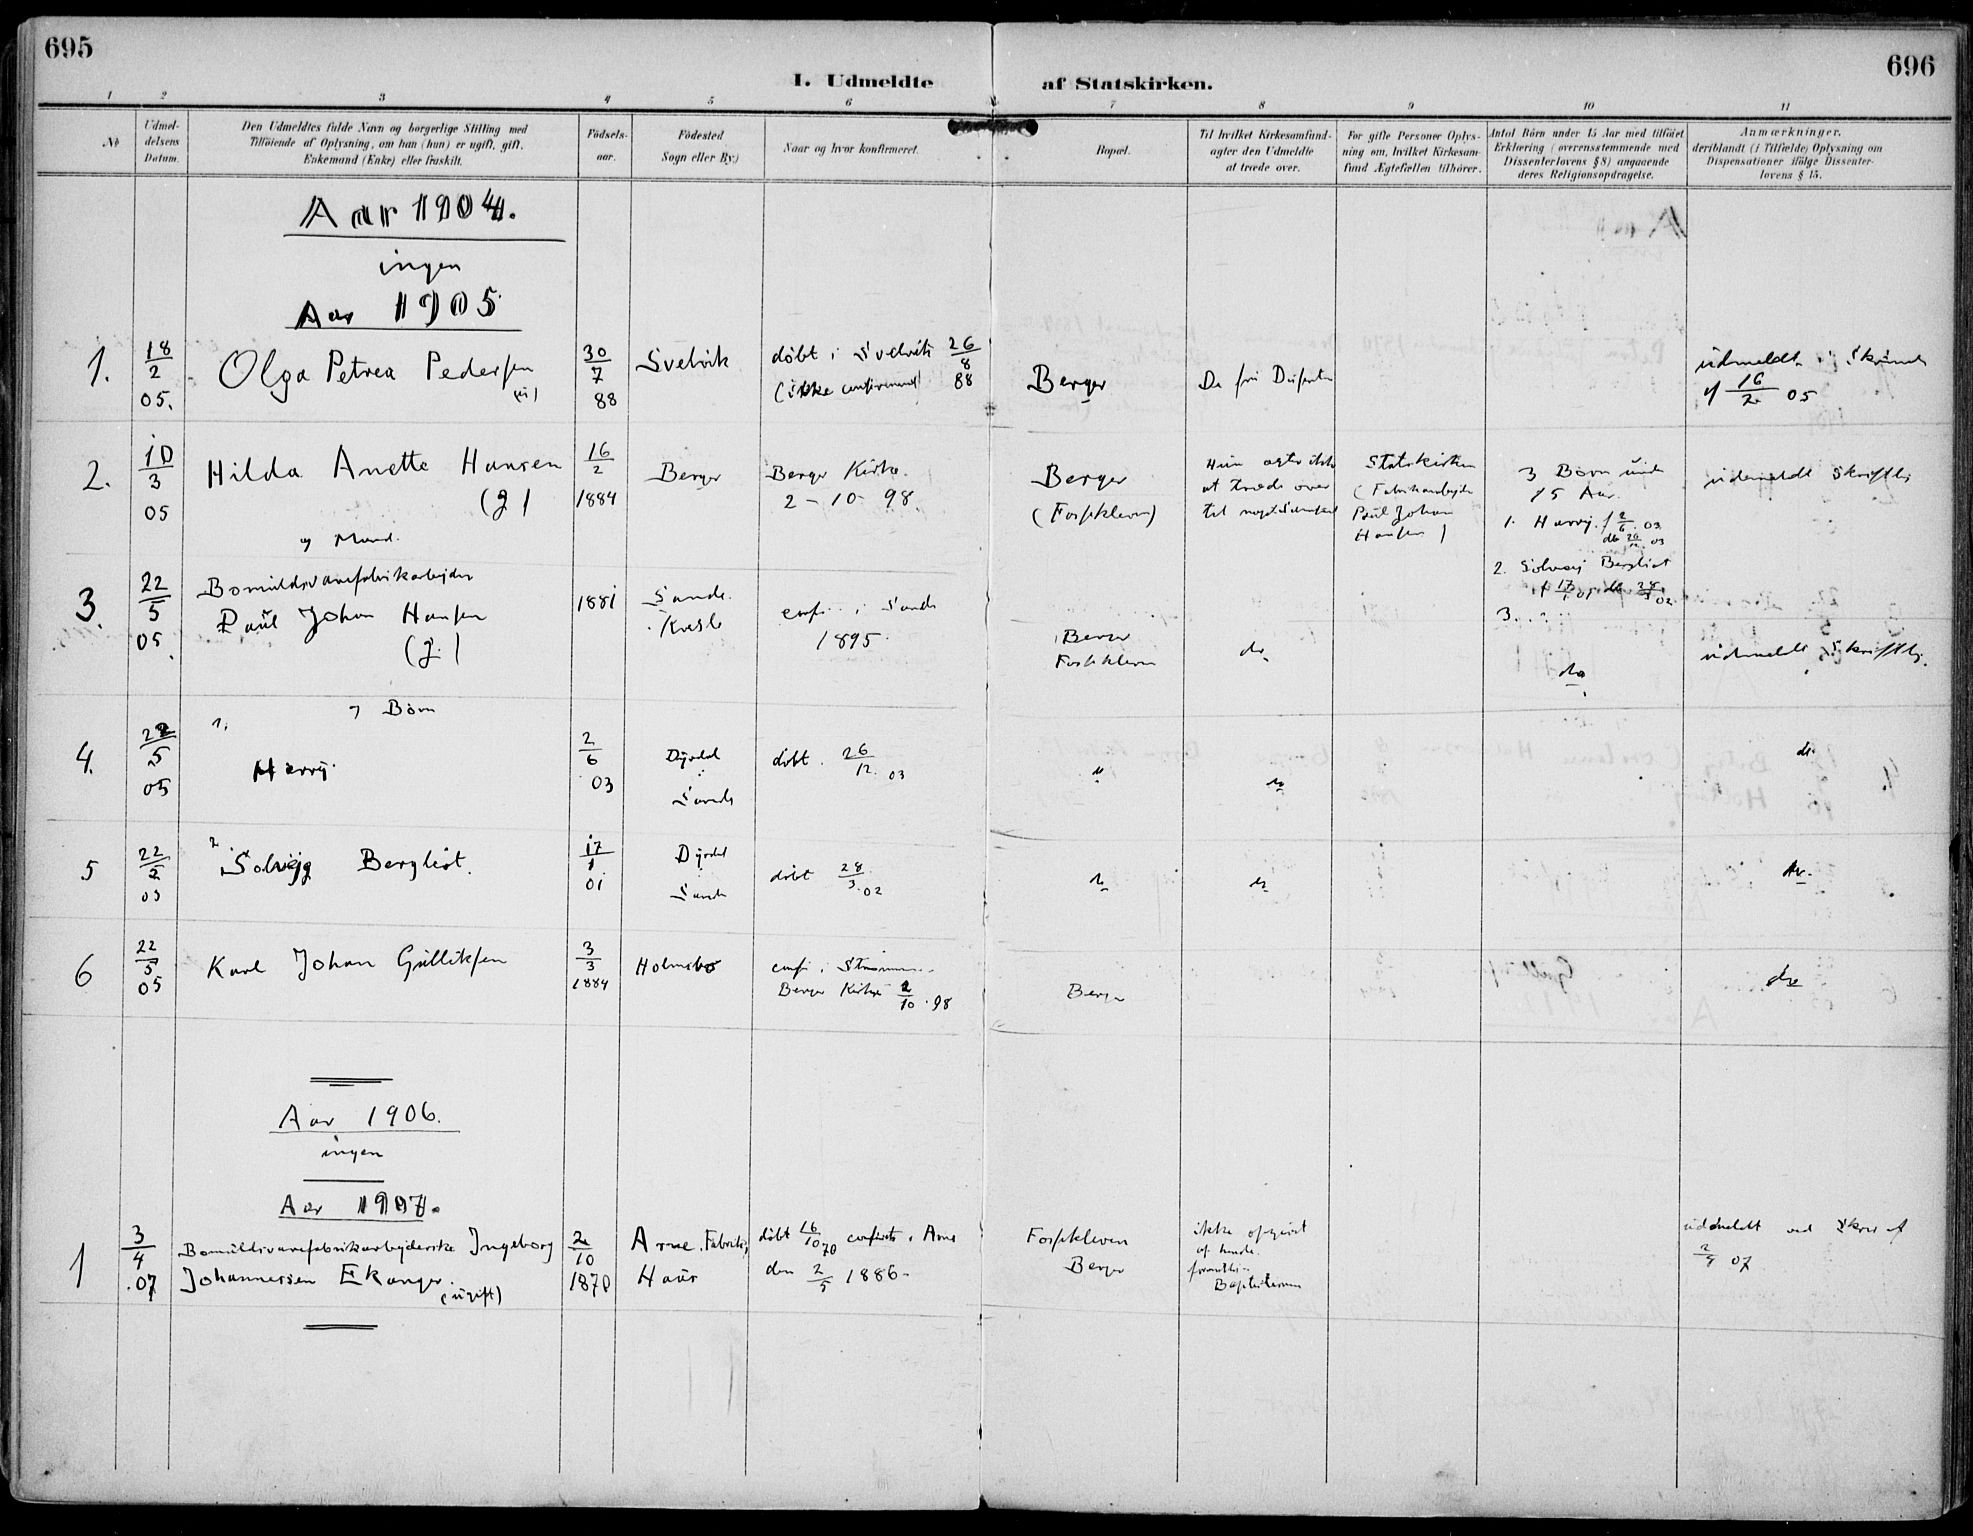 695
696
I. Udmeldte af Statskirken.
1 2 3 4 5 6 7 8 9 10 11
No
Udmel-
delsens
Datum.
Den Udmeldtes fulde Navn og borgerlige Stilling med
Tilföiende af Oplysning, om han (hun) er ugift, gift,
Enkemand (Enke) eller fraskilt.
Födsels-
aar.
Födested
Sogn eller By.)
Naar og hvor konfirmeret.
Bopæl.
Til hvilket Kirkesamfund-
agter den Udmeldte
at træde over.
For gifte Personer Oplys-
ning om, hvilket Kirkesam-
fund Ægtefællen tilhörer.
Antal Börn under 15 Aar med tilföiet
Erklæring (overensstemmende med
Dissenterlovens § 8) angaaende
deres Religionsopdragelse.
Anmærkninger.
deriblandt (i Tilfælde) Oplysning om
Dispensationer ifölge Dissenter-
lovens § 15.
Aar 1904.
ingen
Aar 1905
1.
18/2
05.
Olga Petrea Pedersen
30/7
88
Svelvik
døbt i Svelvik 26/8
(ikke confirmeret) 88
Berger
De fri
udmeldt
16/2 05
2.
10/3
05
Hilda Anette Hansen
(g)
16/2
1884
Berger
Berger Kirke.
2-10-98.
Berger
(Fossekleven)
Hun agter ikke
at træde over
til noget Samfund
Statskirken
(Fabrikarbejder
Paul Johan
Hansen)
3 Børn under
15 Aar.
1. Harry. f 2/6 03
db 26/12 03
2. Solveig Bergliot
f 17/1 01 db 28/3 02
3...
udmeldt skriftlig
og Mand.
3.
22/5
05
Bomuldsvarefabrikarbejder
Paul Johan Hansen
(g.)
1881
Sande.
conf. i Sande
1895.
Berger
Fossekleven
do
do
udmeldt Skriftlig.
og Børn
4.
22/5
05
1.
Harry
2/6
03
Dyrdal
Sande
døbt. 26/12. 03
"
do
do
5
22/5
05
2
Solveig Bergliot.
17/1
01
Dyrdal
Sande
døbt 28/3. 02
do
do
do.
6
22/5
05
Karl Johan Gulliksen
3/3
1884
Holmsbo
conf. i
Berger Kirke 2/10. 98
Berger
do
Aar 1906.
ingen
Aar 1907.
1
3/4
.07
Bomuldsvarefabrikarbejderske Ingeborg
Johannessen Ekanger.
(ugift)
2/10
1870
Arne Fabrik,
Haus
døbt 16/10 70 i Arne
den 2/5 1886.
Fossekleven
Berger
ikke opgivet
af hende.
Baptisterne
uddmeldt ved Skriv af
07